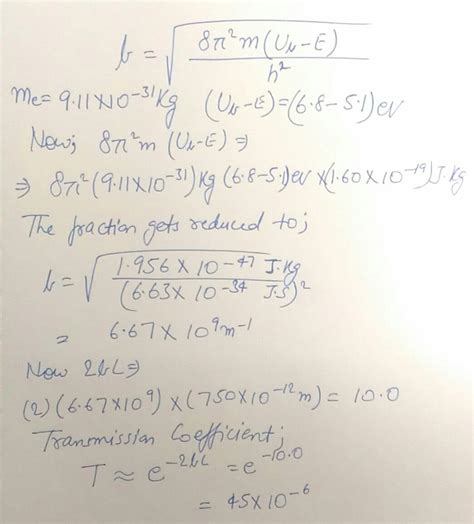 b = √(8π²m(U_b-E)/h²)
Me = 9.11X10⁻³¹Kg (U_b-E)=(6.8-5.1)ev
Now; 8π²m (U_b-E) ⇒
⇒ 8π²(9.11X10⁻³¹)Kg (6.8-5.1)ev X(1.60X10⁻¹⁹)J.Kg
The fraction gets reduced to;
b = √(1.956 X 10⁻⁴⁷ J.Kg/(6.63X 10⁻³⁴ J.S)²)
= 6.67X 10⁹m⁻¹
Now 2bL⇒
(2)(6.67X10⁹)X(750X10⁻¹²m)= 10.0
Transmission Coefficient;
T ≈ e⁻²ᵇᴸ = e⁻¹⁰·⁰
= 45X10⁻⁶